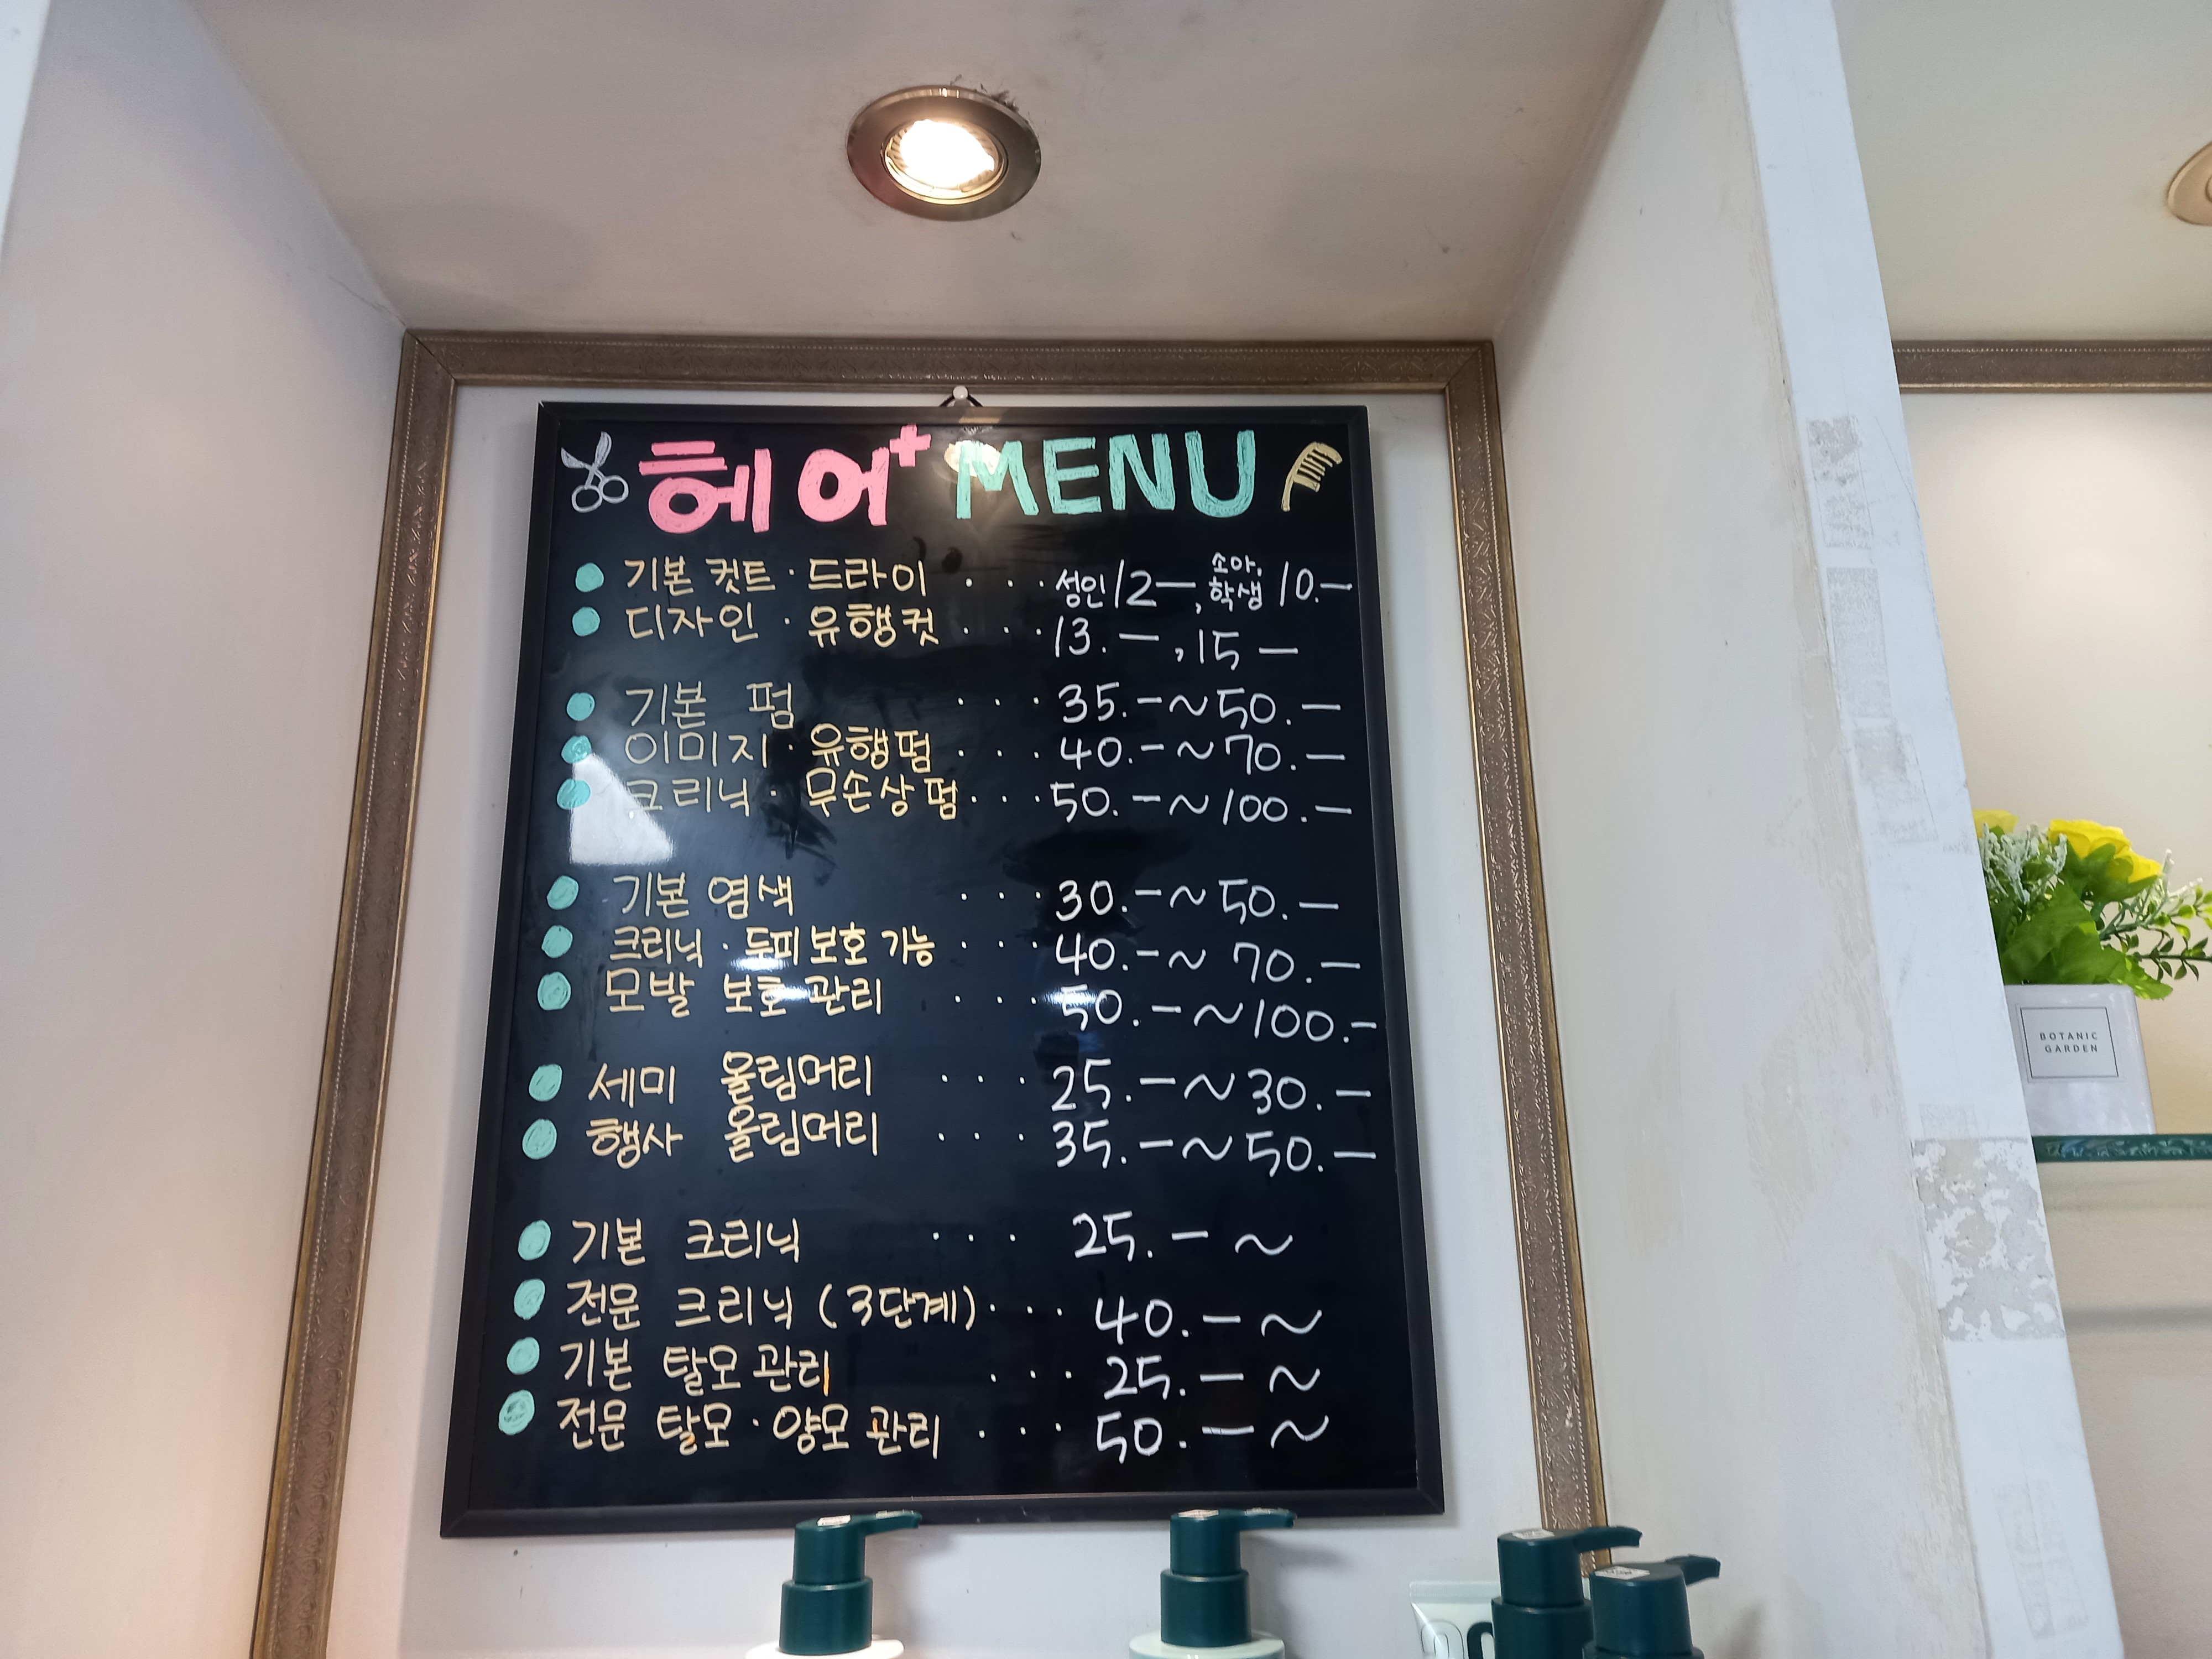 헤어+ MENU
기본 컷트 · 드라이 · · · 성인 12—, 소아, 학생 10.—
디자인 · 유행컷 · · · 13.— , 15 —
기본 펌 · · · 35.—~50.—
이미지 · 유행펌 · · · 40.—~70.—
크리닉 · 무손상펌 · · · 50.—~100.—
기본 염색 · · · 30.—~50.—
크리닉 · 두피보호 기능 · · · 40.—~70.—
모발 보호 관리 · · · 50.—~100.—
세미 올림머리 · · · 25.—~30.—
행사 올림머리 · · · 35.—~50.—
기본 크리닉 · · · 25.— ~
전문 크리닉 (3단계) · · · 40.— ~
기본 탈모 관리 · · · 25.— ~
전문 탈모 · 양모 관리 · · · 50.— ~
BOTANIC
GARDEN